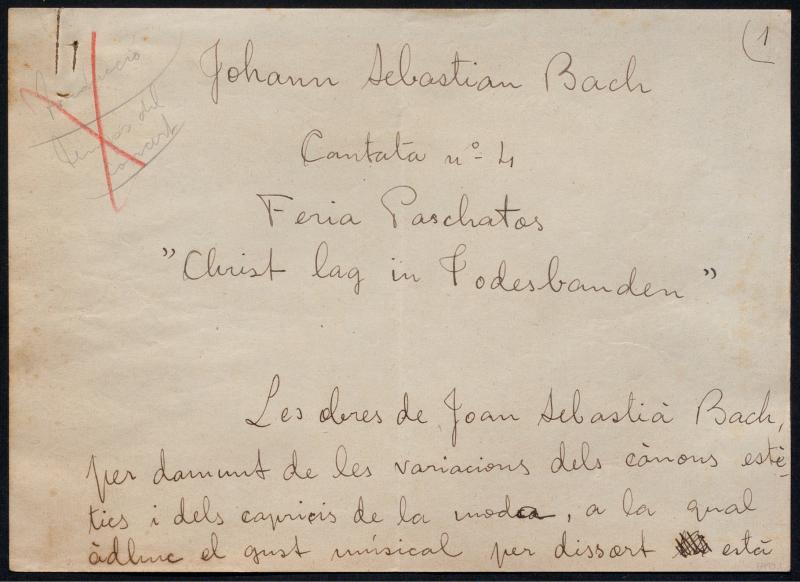 (1
Johann Sebastian Bach
Cantata nº 4
Feria Paschatos
"Christ lag in Todesbanden"
Les obres de Joan Sebastià Bach,
per damunt de les variacions dels cànons estè-
tics i dels capricis de la moda, a la qual
àdhuc el gust músical per dissort està